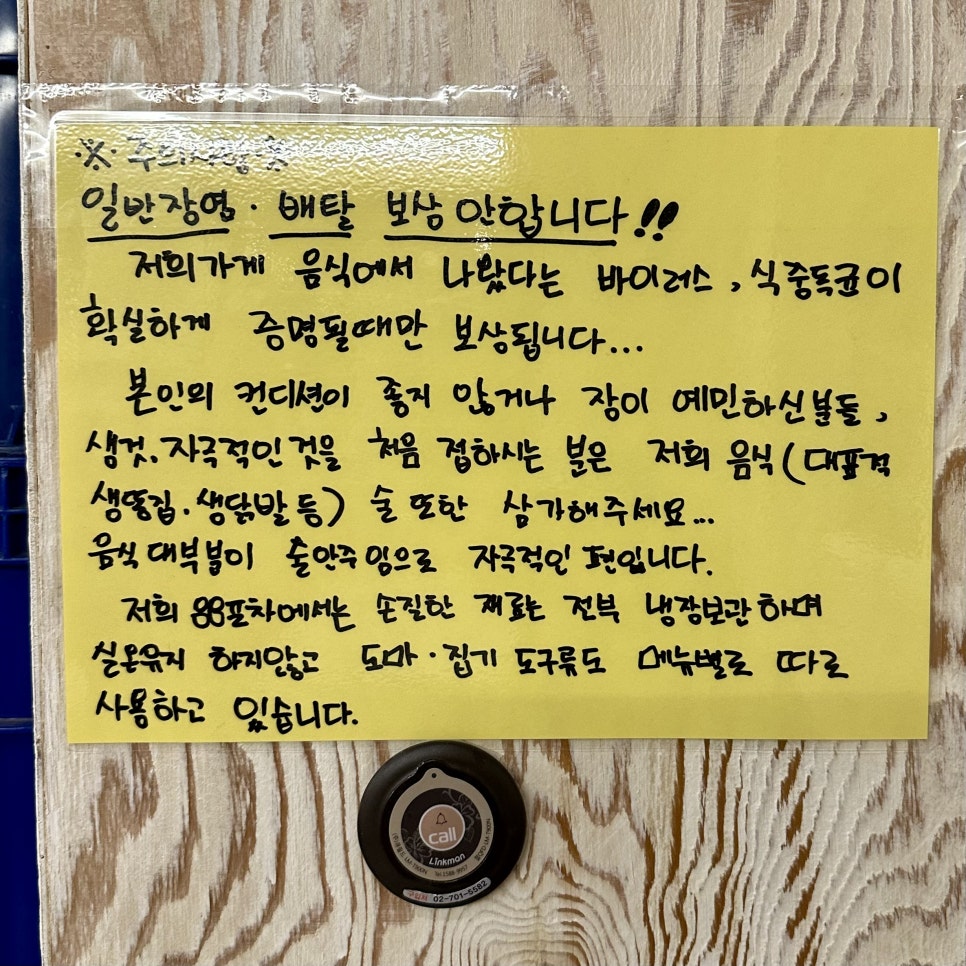 ※ 주의사항 ※
일반장염 · 배탈 보상 안합니다!!
저희가게 음식에서 나왔다는 바이러스, 식중독균이
확실하게 증명될때만 보상됩니다...
본인의 컨디션이 좋지 않거나 장이 예민하신분들,
생것, 자극적인것을 처음 접하시는 분은 저희 음식(대표격
생똥집, 생닭발 등) 술 또한 삼가해주세요...
음식 대부분이 술안주임으로 자극적인 편입니다.
저희 용용포차에서는 손질한 재료는 전부 냉장보관하며
실온유지 하지않고 도마·집기 도구류도 메뉴별로 따로
사용하고 있습니다.
call
Linkman
구입처 02-701-5582